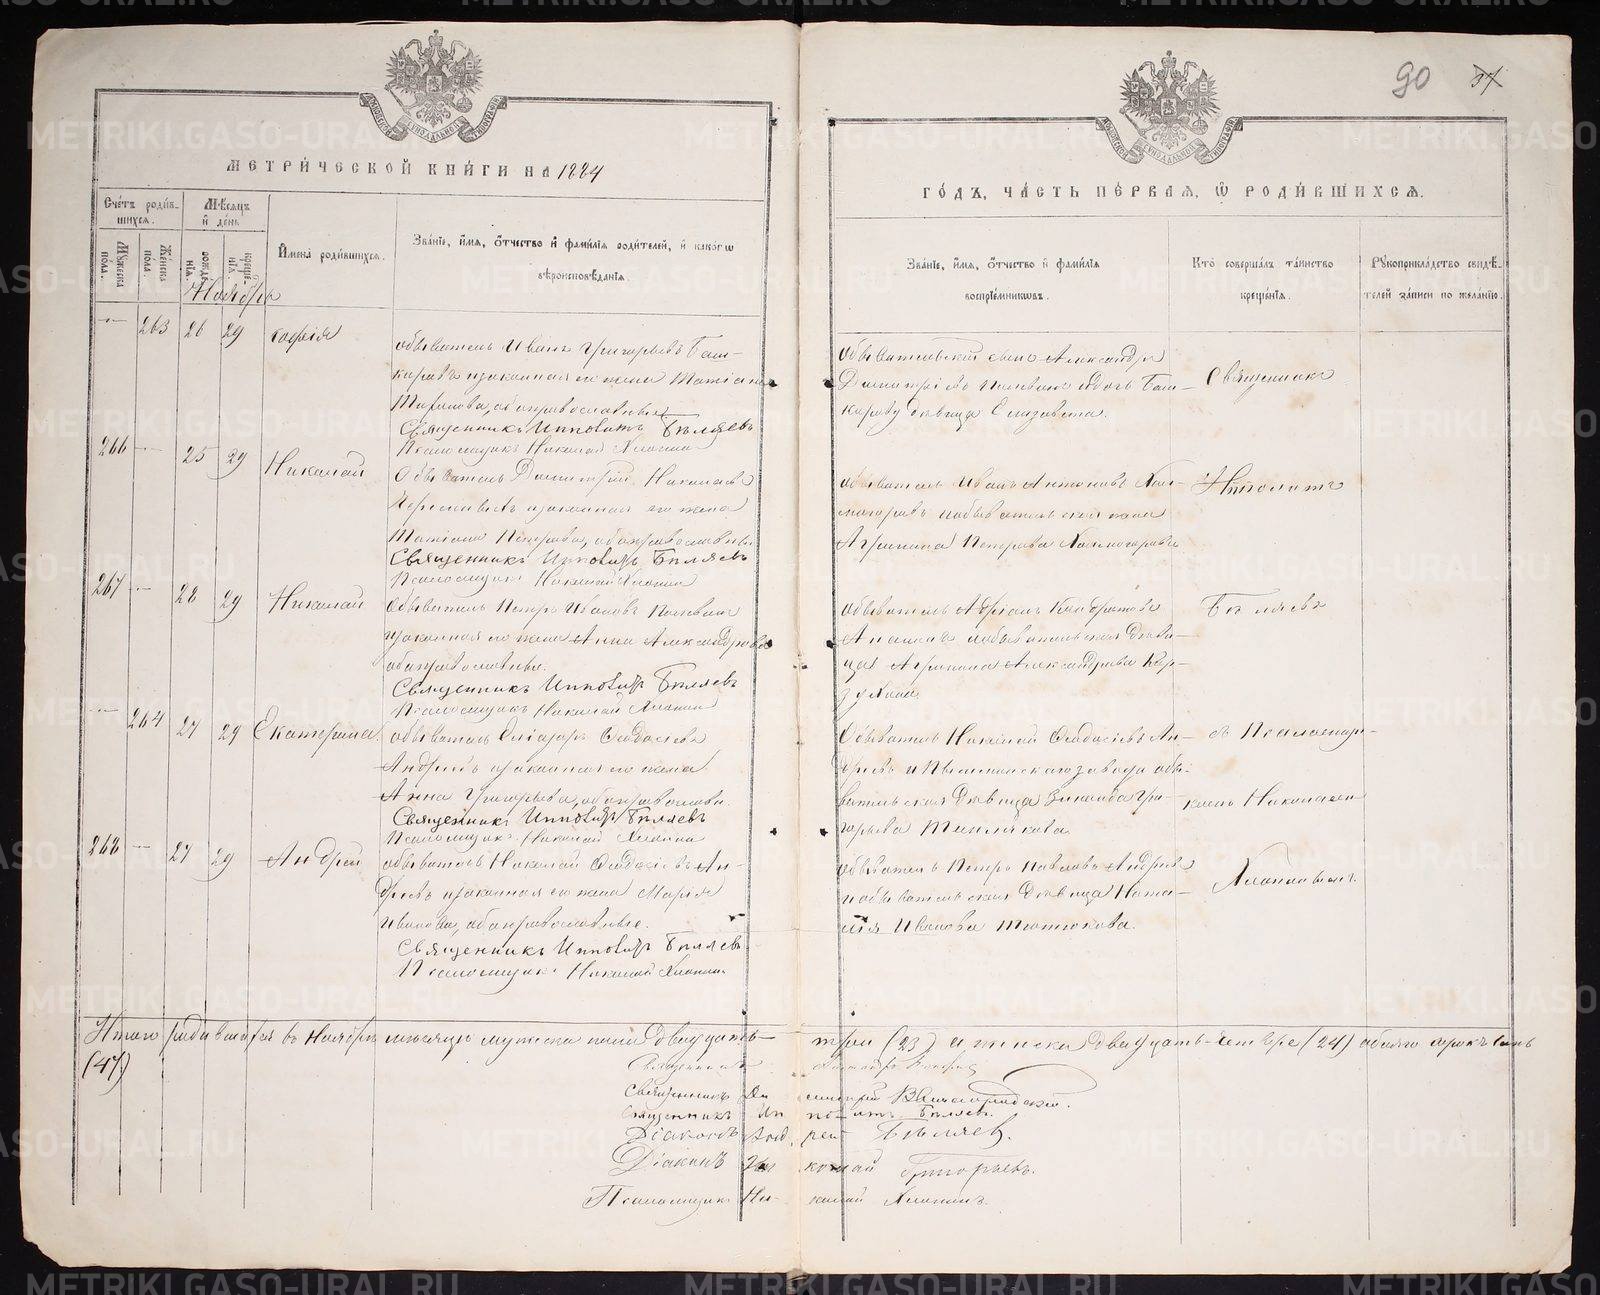 90 37
МЕТРИЧЕСКОЙ КНИГИ НА 1884
ГОДЪ, ЧАСТЬ ПЕРВАЯ, Ѿ РОДИВШИХСЯ.
Счетъ родив-
шихся.
Мѣсяцъ
и день
Мужеска
пола.
Женска
пола.
рожде
нія.
креще
нія.
Имена родившихся.
Званіе, имя, отчество и фамилія родителей, и какогѡ
вѣроисповѣданія.
Званіе, имя, отчество и фамилія
воспріемникѡвъ.
Кто совершалъ таинство
крещенія.
Рукоприкладство свидѣ-
телей записи по желанію.
Ноябрь
263 26 29 Софія
обыватель Иванъ Григорьевъ Баш-
каровъ и законная его жена Татіана
обаправославные
Священникъ Ипполитъ Бѣляевъ
Псаломщикъ Николай Хлопинъ
Обывательскій сынъ Александръ
Дмитріевъ
дѣвица Елизавета.
Священникъ
266 25 29 Николай
Обыватель Димитрій Николаевъ
и законная его жена
Татіана Петрова, обаправославные
Священникъ Ипполитъ Бѣляевъ
Псаломщикъ Николай Хлопинъ
Обыватель Иванъ Антоновъ Хол-
могоровъ и обывательская жена
Агрипина Петрова Холмогорова
Ипполитъ
267 28 29 Николай
Обыватель Петръ Ивановъ
законная его жена Анна Александрова
обаправославные.
Священникъ Ипполитъ Бѣляевъ
Псаломщикъ Николай Хлопинъ
Обыватель
и обывательская дѣви-
ца Агрипина Александрова
Бѣляевъ
264 27 29 Екатерина
обыватель Елiазаръ Ѳеодосіевъ
Андреевъ и законная его жена
Анна Григорьева, обаправославн.
Священникъ Ипполитъ Бѣляевъ
Псаломщикъ Николай Хлопинъ
Обыватель Николай Ѳеодосіевъ Ан-
дреевъ и Пышминскаго завода обы-
вательская дѣвица Зинаида Гри-
горьева
съ Псаломщи-
комъ Николаемъ
268 27 29 Андрей
обыватель Николай Ѳеодосіевъ Ан-
дреевъ и законная его жена Марія
Иванова, обаправославные.
Священникъ Ипполитъ Бѣляевъ
Псаломщикъ Николай Хлопинъ
Обыватель Петръ Павловъ Андреевъ
и обывательская дѣвица Ната-
лія Иванова Тютюкова.
Хлопинымъ.
Итого родившихся въ Ноябрѣ мѣсяцѣ мужеска пола двадцать-три (23) а женска двадцать-четыре (24) обоего сорокъ семь
(47)
Священникъ
Священникъ Димитрій
Священникъ Ипполитъ Бѣляевъ.
Діаконъ Андрей Бѣляев.
Діаконъ Николай Григорьевъ.
Псаломщикъ Николай Хлопинъ.
METRIKI.GASO-URAL.RU